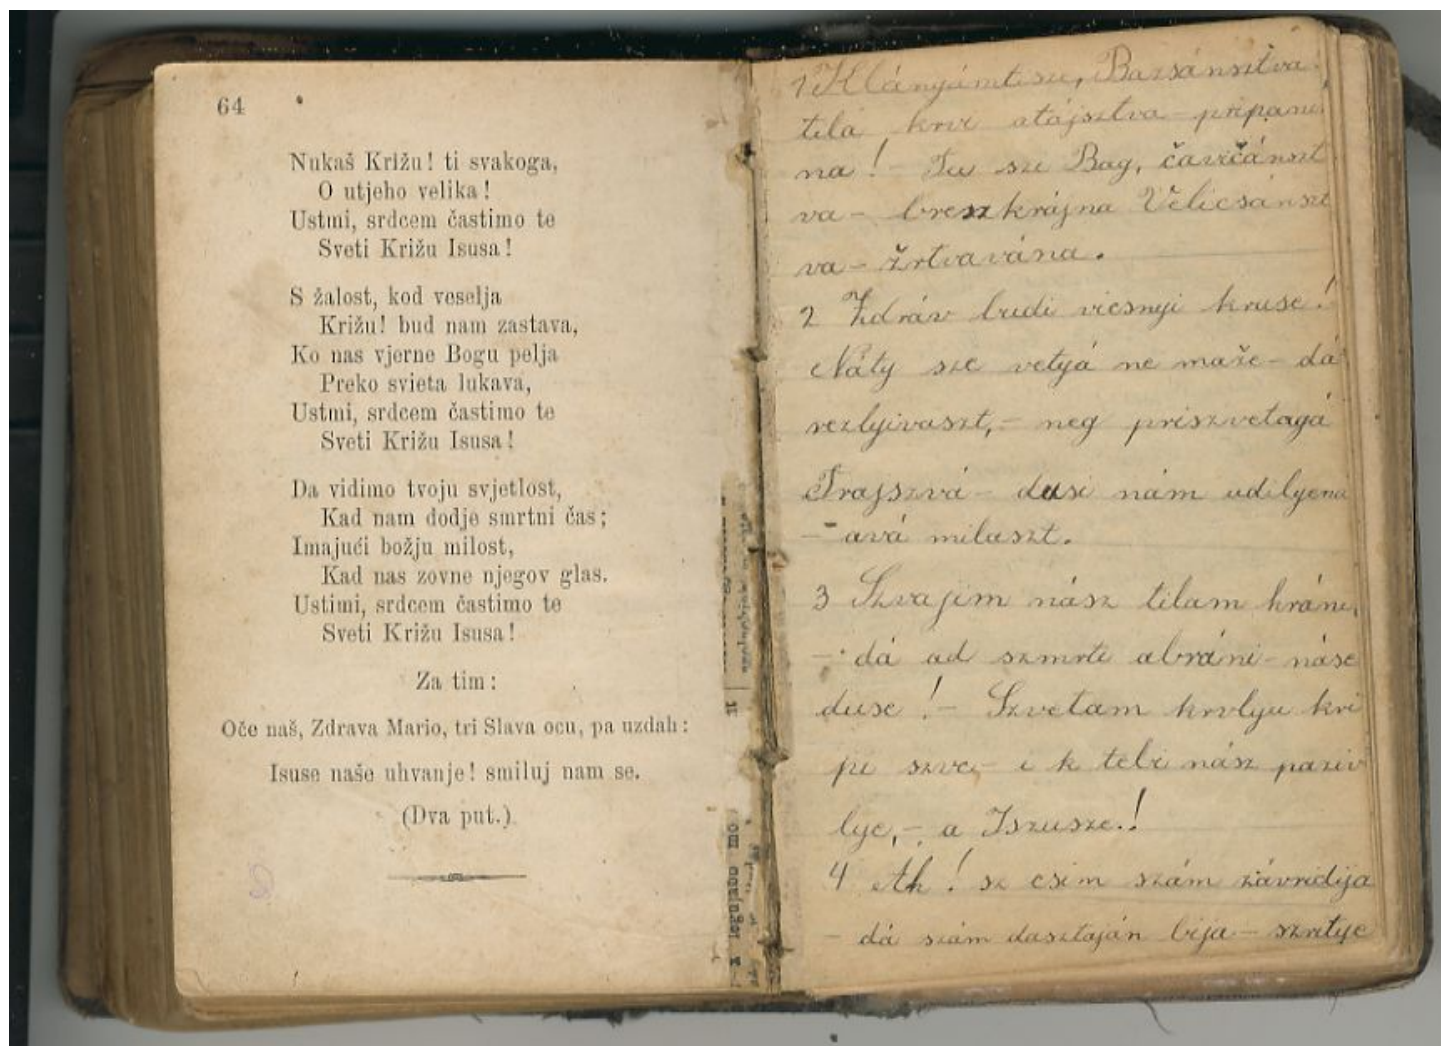 64
Nukaš Križu! ti svakoga,
O utjeho velika!
Ustmi, srdcem častimo te
Sveti Križu Isusa!
S žalost, kod veselja
Križu! bud nam zastava,
Ko nas vjerne Bogu pelja
Preko svieta lukava,
Ustmi, srdcem častimo te
Sveti Križu Isusa!
Da vidimo tvoju svjetlost,
Kad nam dodje smrtni čas;
Imajući božju milost,
Kad nas zovne njegov glas.
Ustimi, srdcem častimo te
Sveti Križu Isusa!
Za tim:
Oče naš, Zdrava Mario, tri Slava ocu, pa uzdah:
Isuse naše uhvanje! smiluj nam se.
(Dva put.)
1 Klányámtisze, Bazsánsztva
tilá krvi atájsztva - pripane
na! - Tu sze Bag, čavičánszt
va - breszkrájna Velicsánszt
va - žrtvavána.
2 Zdráv budi vicsnyi kruse!
Náty sze vetyá ne maže - dá
rezlyivaszt, - neg priszvetagá
Trajsztvá - dusi nám udilyena
- avá milaszt.
3 Szvajim nász tilam hráni,
- dá ad szmrti abráni - náse
duse! - Szvetam krvlyu kri
pi szve - i k tebi nász paziv
lye, - a Iszusze!
4 Ah! sz csim szám závridija
- dá szám dasztaján bija - szritye